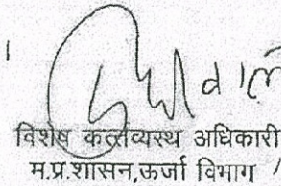 विशेष कर्त्तव्यस्थ अधिकारी
म.प्र.शासन,ऊर्जा विभाग